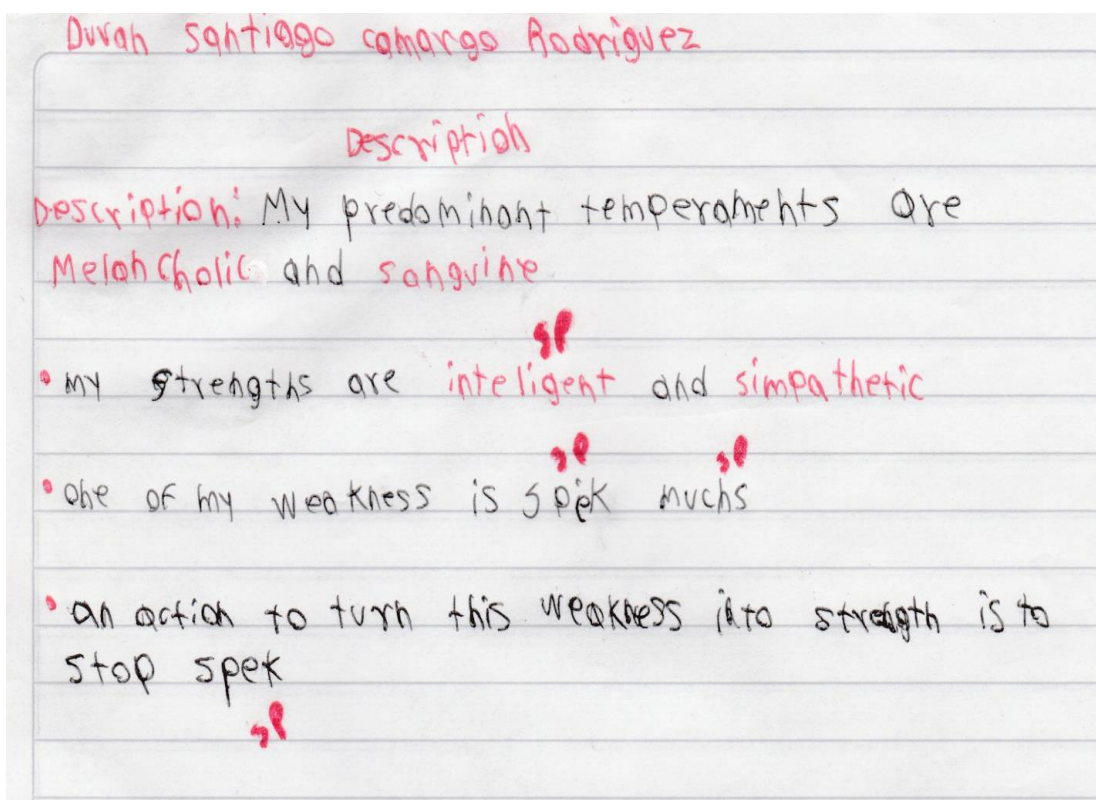 Duvan Santiago camargo Rodriguez
Description
Description: My predominant temperaments are
Melancholic and sanguine
sp
• my strengths are inteligent and simpathetic
sp sp
• one of my weakness is spek muchs
• an action to turn this weakness into strength is to
stop spek
sp